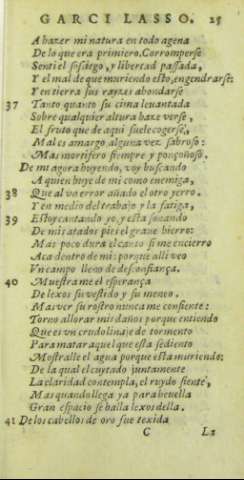 GARCI LASSO. 25
A hazer mi natura en todo agena
De lo que era primiero. Corromperse
Senti el sosiego, y libertad passada,
Y el mal de que muriendo esto, engendrarse:
Y en tierra sus rayzes ahondarse
37 Tanto quanto su cima levantada
Sobre qualquier altura haze verse,
El fruto que de aqui suele cogerse,
Mal es amargo, alguna vez sabroso:
Mas mortifero siempre y ponçoñoso.
De mi agora huyendo, voy buscando
A quien huye de mi como enemiga,
38 Que al vn error añado el otro yerro.
Y en medio del trabajo y la fatiga,
39 Estoy cantando yo, y esta sonando
De mis atados pies el graue hierro:
Mas poco dura el canto si me encierro
Aca dentro de mi: porque alli veo
Vn campo lleno de desconfiança.
40 Muestrame el esperança
De lexos su vestido y su meneo.
Mas ver su rostro nunca me consiente:
Torno a llorar mis daños porque entiendo
Que es vn crudo linaje de tormento
Para matar aquel que esta sediento
Mostralle el agua porque esta muriendo:
De la qual el cuytado juntamente
La claridad contempla, el ruydo siente,
Mas quando llega ya para beuella
Gran espacio se halla lexos della.
41 De los cabellos de oro fue texida
C La